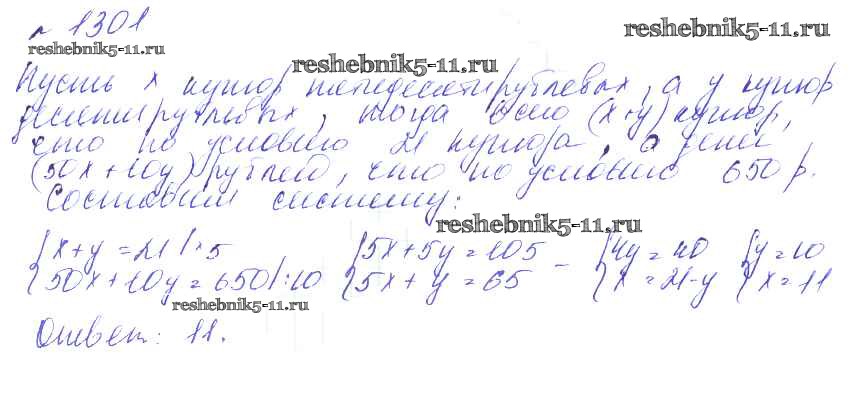 № 1301
reshebnik5-11.ru
reshebnik5-11.ru
reshebnik5-11.ru
Пусть x купюр пятидесятирублевых, а y купюр
десятирублевых, тогда всего (x+y) купюр,
что по условию 21 купюра, а денег
(50x+10y) рублей, что по условию 650 р.
Составим систему:
reshebnik5-11.ru
{x+y=21 |·5 {5x+5y=105 – {4y=40 {y=10
{50x+10y=650 |:10 {5x+y=65 {x=21-y {x=11
reshebnik5-11.ru
Ответ: 11.